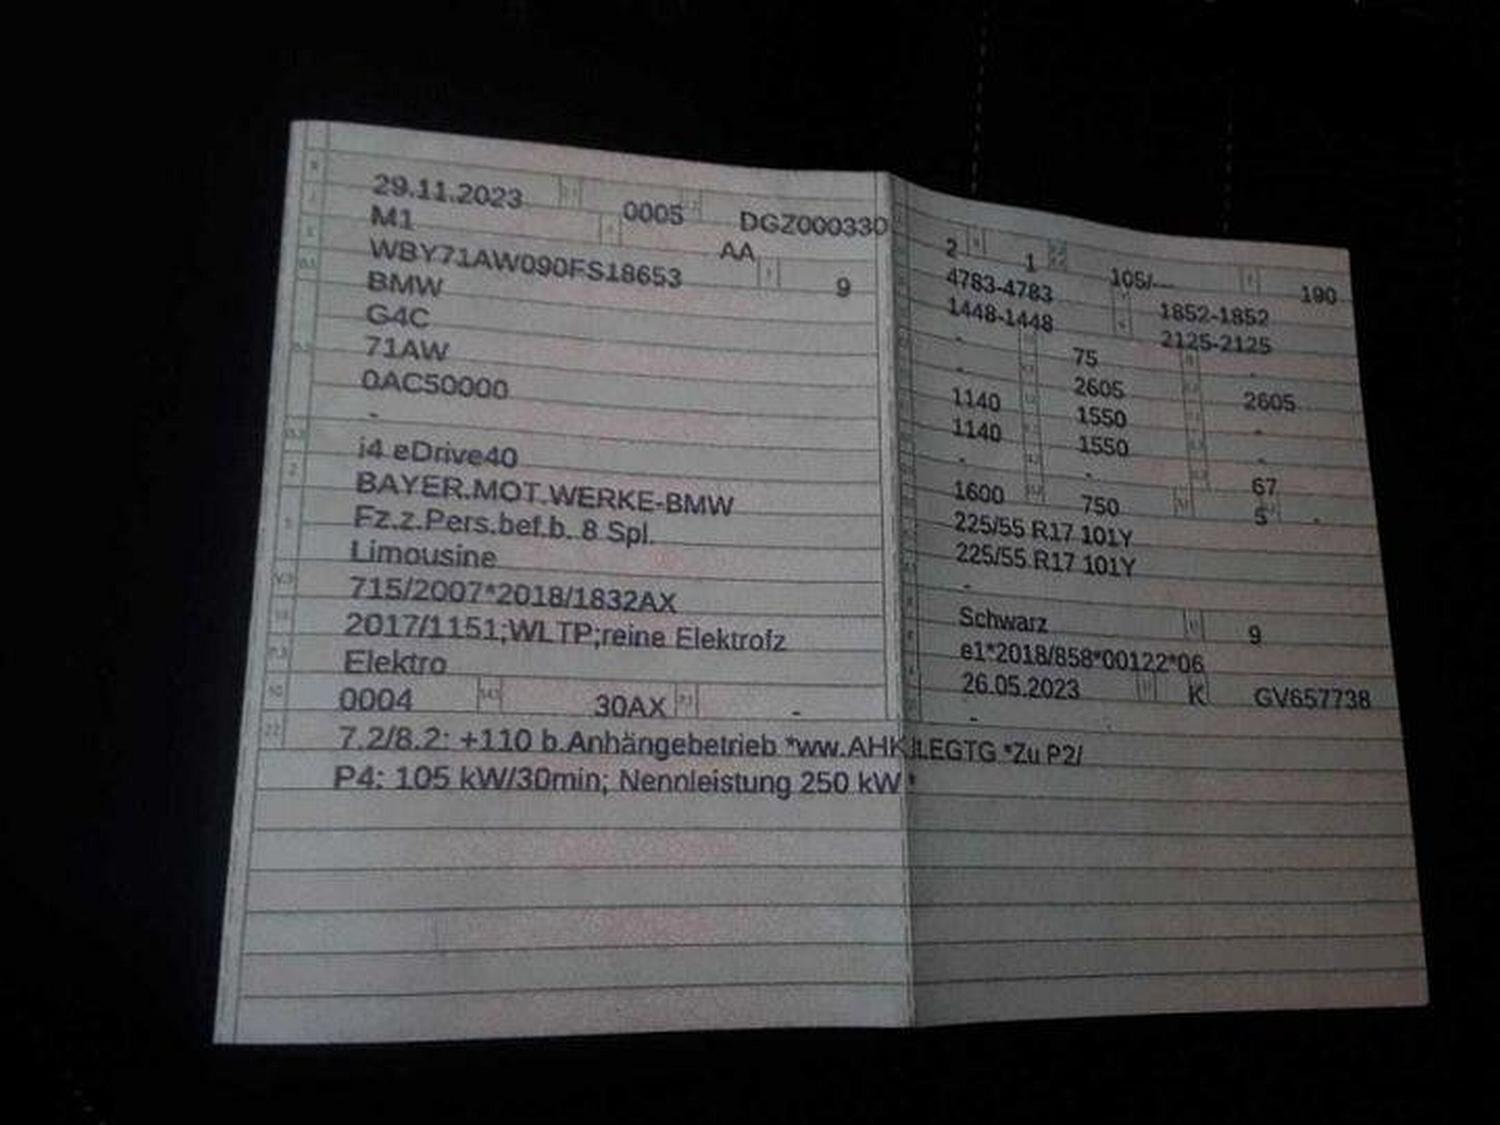 29.11.2023 0005 DGZ000330
M1 AA
WBY71AW090FS18653 9
BMW
G4C
71AW
0AC50000
-
i4 eDrive40
BAYER.MOT.WERKE-BMW
Fz.z.Pers.bef.b. 8 Spl.
Limousine
715/2007*2018/1832AX
2017/1151;WLTP;reine Elektrofz
Elektro
0004 30AX -
2 1 105/--- 190
4783-4783 1852-1852
1448-1448 2125-2125
- 75 -
- 2605 2605
1140 1550 -
1140 1550 -
- - 67
1600 750 5 -
225/55 R17 101Y
225/55 R17 101Y
-
Schwarz 9
e1*2018/858*00122*06
26.05.2023 K GV657738
-
7.2/8.2: +110 b.Anhängebetrieb *ww.AHK LEGTG *Zu P2/
P4: 105 kW/30min; Nennleistung 250 kW *